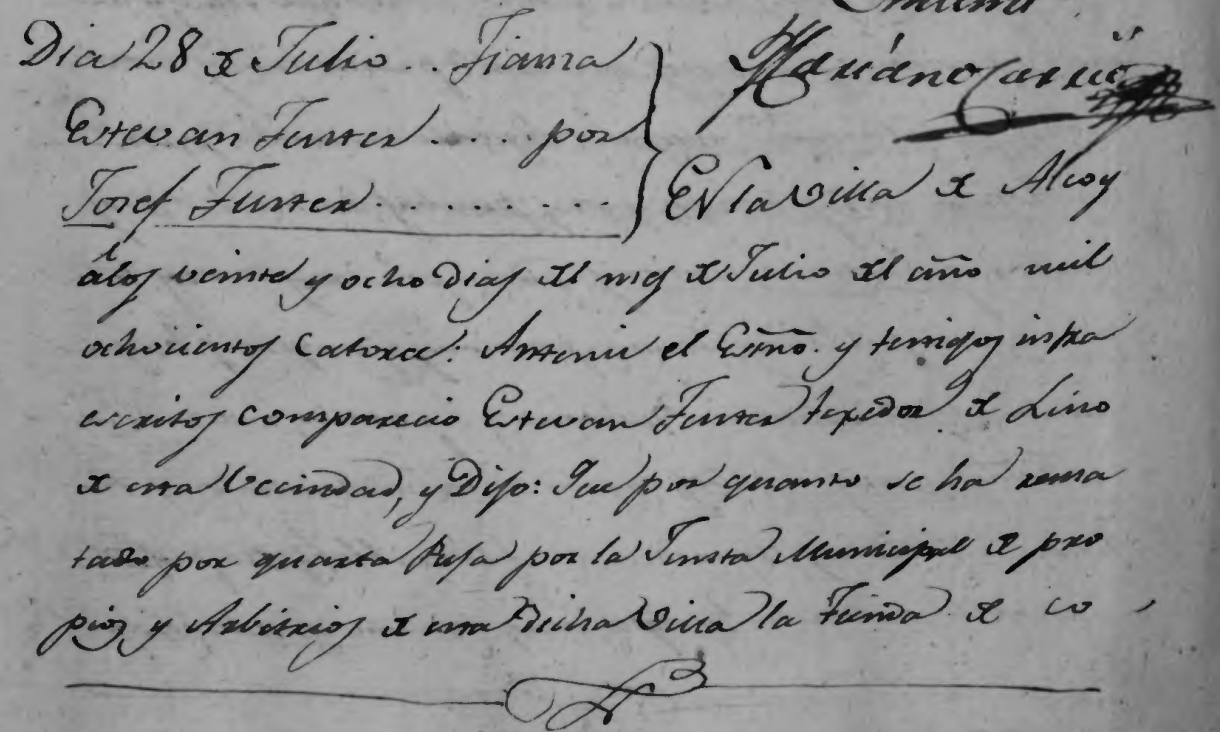 Dia 28 de Julio .. Fianza
Estevan Fuster ..... por
Josef Fuster ..........
Mariano Carrió
EN la Villa de Alcoy
álos veinte y ocho Dias del mes de Julio del año mil
ochocientos Catorce: Antemi el Esno. y testigos infra
escritos comparecio Estevan Fuster texedor de Lino
de esta Vecindad, y Dijo: Que por quanto se ha rema
tado por quarta Pusa por la Junta Municipal de pro
pios y Arbitrios de esta dicha Villa la Tienda de co